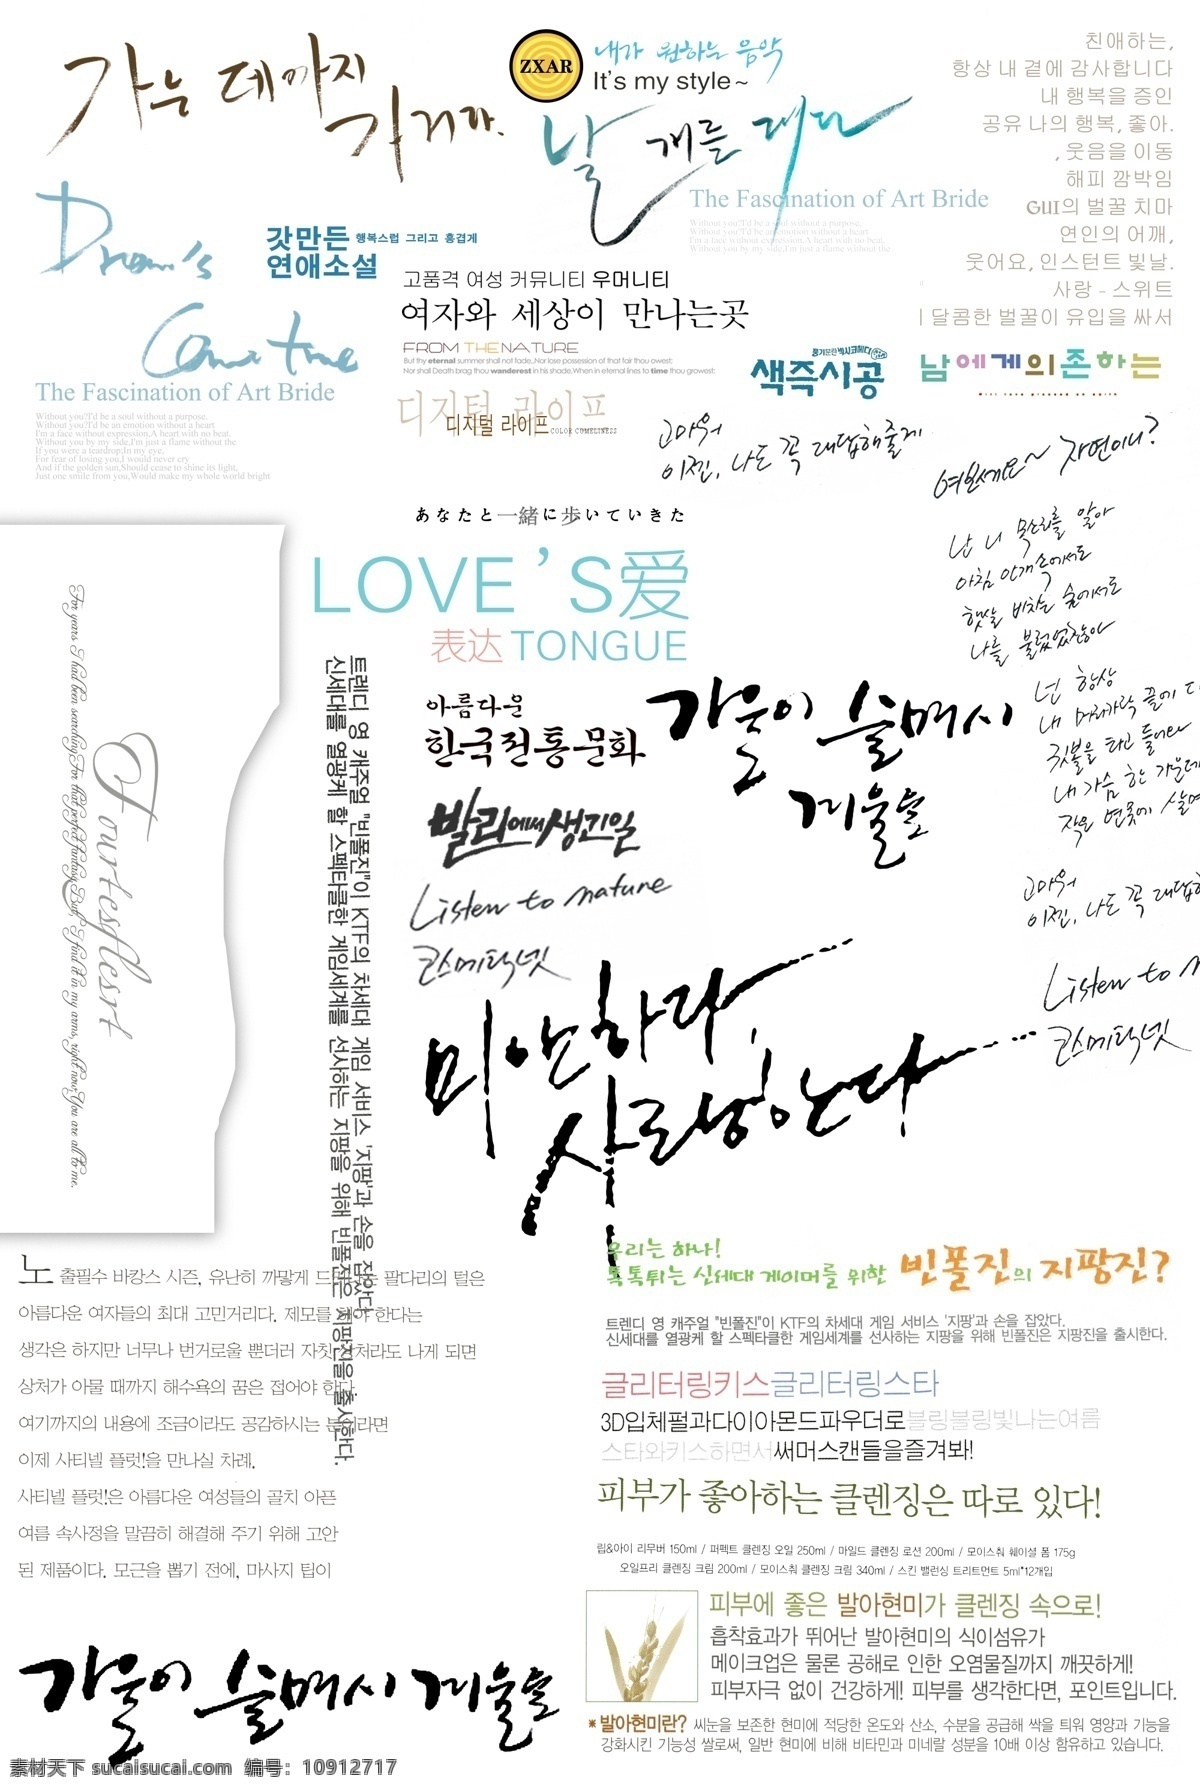 가는 데까지
가거라.
ZXAR
내가 원하는 음악
It's my style~
날개를 대다
친애하는,
항상 내 곁에 감사합니다
내 행복을 증인
공유 나의 행복, 좋아.
, 웃음을 이동
해피 깜박임
GUI의 벌꿀 치마
연인의 어깨,
웃어요, 인스턴트 빛날.
사랑 - 스위트
달콤한 벌꿀이 유입을 싸서
The Fascination of Art Bride
Without you?I'd be a soul without a purpose.
Without you?I'd be an emotion without a heart
I'm a face without expression,A heart with no beat.
Without you by my side,I'm just a flame without the
갓만든 행복스럽 그리고 흥겹게
연애소설
고품격 여성 커뮤니티 우머니티
여자와 세상이 만나는곳
FROM THE NATURE
But thy eternal summer shall not fade,Nor lose possession of that fair thou owest;
Nor shall Death brag thou wanderest in his shade,When in eternal lines to time thou growest:
디지털 라이프
디지털 라이프 COLOR COMELINESS
색즉시공
남에게의존하는
The Fascination of Art Bride
Without you?I'd be a soul without a purpose.
Without you?I'd be an emotion without a heart
I'm a face without expression,A heart with no beat.
Without you by my side,I'm just a flame without the
If you were a teardrop;In my eye,
For fear of losing you,I would never cry
And if the golden sun,Should cease to shine its light,
Just one smile from you,Would make my whole world bright
고마워
이젠, 나도 꼭 대답해줄게
여보세요~ 자연이니?
난 니 목소리를 알아
아침 안개 속에서도
햇살 비치는 숲에서도
나를 불렀었잖아
넌 항상
내 머리카락 끝에
귓볼을 타고 들어와
내 가슴 한 가운데
작은 연못에
あなたと一緒に歩いていきた
LOVE'S爱
表达TONGUE
아름다운
한국전통문화
가을이 슬며시
겨울로
발리에서생긴일
Listen to nature
코스메틱넷
고마워
이젠, 나도 꼭 대답
Listen to
코스메틱넷
미안하다,
사랑한다
Fourtesflesrt
For years I had been searching,For that perfect fantasy,But, I find it in my arms, right now,You are all to me.
트렌디 영 캐주얼 "빈폴진"이 KTF의 차세대 게임 서비스 '지팡'과 손을 잡았다.
신세대를 열광케 할 스펙타클한 게임세계를 선사하는 지팡을 위해 빈폴진은 지팡진을 출시한다.
노출필수 바캉스 시즌, 유난히 까맣게 팔다리의 털은
아름다운 여자들의 최대 고민거리다. 제모를 해야 한다는
생각은 하지만 너무나 번거로울 뿐더러 자칫 상처라도 나게 되면
상처가 아물 때까지 해수욕의 꿈은 접어야 한다
여기까지의 내용에 조금이라도 공감하시는 분이라면
이제 사티넬 플럿!을 만나실 차례.
사티넬 플럿!은 아름다운 여성들의 골치 아픈
여름 속사정을 말끔히 해결해 주기 위해 고안
된 제품이다. 모근을 뽑기 전에, 마사지 팁이
우리는 하나!
톡톡튀는 신세대 게이머를 위한 빈폴진의 지팡진?
트렌디 영 캐주얼 "빈폴진"이 KTF의 차세대 게임 서비스 '지팡'과 손을 잡았다.
신세대를 열광케 할 스펙타클한 게임세계를 선사하는 지팡을 위해 빈폴진은 지팡진을 출시한다.
글리터링키스글리터링스타
3D입체펄과다이아몬드파우더로블링블링빛나는여름
스타와키스하면서써머스캔들을즐겨봐!
피부가 좋아하는 클렌징은 따로 있다!
립&아이 리무버 150ml / 퍼펙트 클렌징 오일 250ml / 마일드 클렌징 로션 200ml / 모이스춰 훼이셜 폼 175g
오일프리 클렌징 크림 200ml / 모이스춰 클렌징 크림 340ml / 스킨 밸런싱 트리트먼트 5ml*12개입
피부에 좋은 발아현미가 클렌징 속으로!
흡착효과가 뛰어난 발아현미의 식이섬유가
메이크업은 물론 공해로 인한 오염물질까지 깨끗하게!
피부자극 없이 건강하게! 피부를 생각한다면, 포인트입니다.
*발아현미란? 씨눈을 보존한 현미에 적당한 온도와 산소, 수분을 공급해 싹을 틔워 영양과 기능을
강화시킨 기능성 쌀로써, 일반 현미에 비해 비타민과 미네랄 성분을 10배 이상 함유하고 있습니다.
가을이 슬며시 겨울로
素材天下 sucaisucai.com 编号：10912717